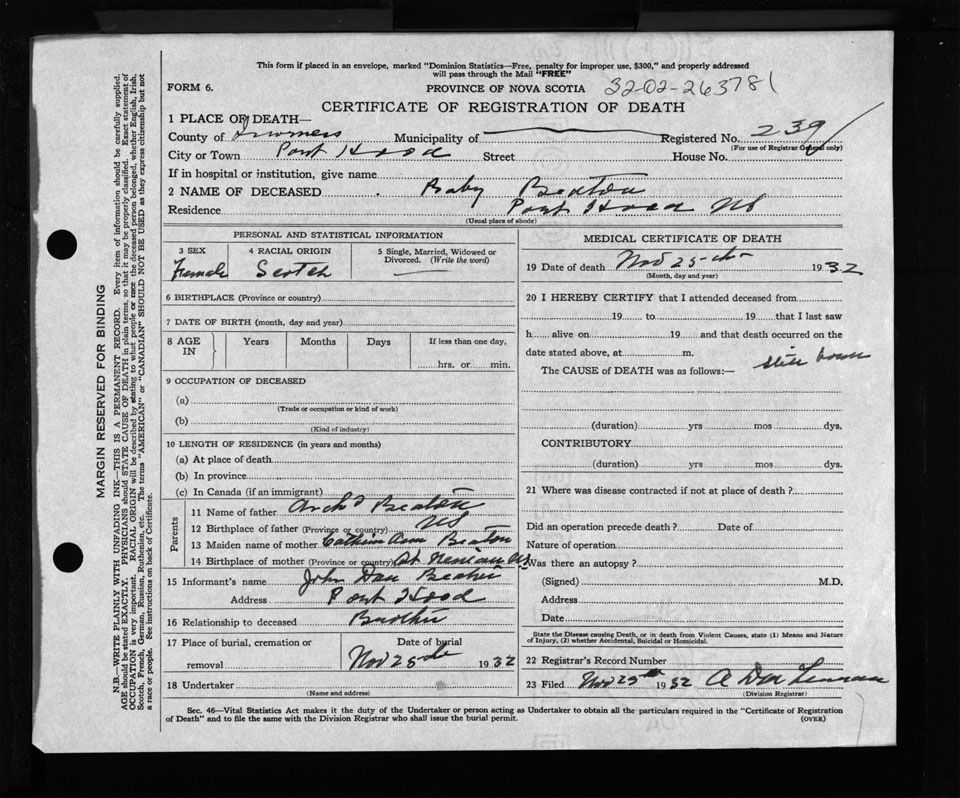 This form if placed in an envelope, marked "Dominion Statistics—Free, penalty for improper use, $300," and properly addressed
will pass through the Mail "FREE"
FORM 6.
PROVINCE OF NOVA SCOTIA
32-02-263781
CERTIFICATE OF REGISTRATION OF DEATH
1 PLACE OF DEATH—
County of Inverness Municipality of Registered No. 239
(For use of Registrar General only)
City or Town Port Hood Street House No.
If in hospital or institution, give name
2 NAME OF DECEASED Baby Beaton
Residence Port Hood NS
(Usual place of abode)
PERSONAL AND STATISTICAL INFORMATION
3 SEX 4 RACIAL ORIGIN 5 Single, Married, Widowed or
Divorced. (Write the word)
Female Scotch
6 BIRTHPLACE (Province or country)
7 DATE OF BIRTH (month, day and year)
8 AGE IN Years Months Days If less than one day,
hrs. or min.
9 OCCUPATION OF DECEASED
(a)
(Trade or occupation or kind of work)
(b)
(Kind of industry)
10 LENGTH OF RESIDENCE (in years and months)
(a) At place of death
(b) In province
(c) In Canada (if an immigrant)
Parents
11 Name of father Archd Beaton
12 Birthplace of father (Province or country) NS
13 Maiden name of mother Ann Beaton
14 Birthplace of mother (Province or country) NS
15 Informant's name John Dan Beaton
Address Port Hood
16 Relationship to deceased Brother
17 Place of burial, cremation or
removal
Date of burial
Nov 25th 1932
18 Undertaker
(Name and address)
MEDICAL CERTIFICATE OF DEATH
19 Date of death Nov 25th 1932
(Month, day and year)
20 I HEREBY CERTIFY that I attended deceased from
19 to 19 that I last saw
h alive on 19 and that death occurred on the
date stated above, at m.
The CAUSE of DEATH was as follows:— still born
(duration) yrs mos dys.
CONTRIBUTORY
(duration) yrs mos dys.
21 Where was disease contracted if not at place of death?
Did an operation precede death? Date of
Nature of operation
Was there an autopsy?
(Signed) M.D.
Address
Date
State the Disease causing Death, or in death from Violent Causes, state (1) Means and Nature
of Injury, (2) whether Accidental, Suicidal or Homicidal.
22 Registrar's Record Number
23 Filed Nov 25th 1932
(Division Registrar)
Sec. 46—Vital Statistics Act makes it the duty of the Undertaker or person acting as Undertaker to obtain all the particulars required in the "Certificate of Registration
of Death" and to file the same with the Division Registrar who shall issue the burial permit.
(OVER)
MARGIN RESERVED FOR BINDING
N.B.—WRITE PLAINLY WITH UNFADING INK—THIS IS A PERMANENT RECORD. Every item of information should be carefully supplied.
AGE should be stated EXACTLY. PHYSICIANS should STATE CAUSE OF DEATH in plain terms, so that it may be properly classified. Exact statement of
OCCUPATION is very important. RACIAL ORIGIN will be described by stating to what people or race the deceased person belonged, whether English, Irish,
Scotch, French, German, Russian, Ruthenian, etc. The terms "AMERICAN" or "CANADIAN" SHOULD NOT BE USED as they express citizenship but not
a race or people. See instructions on back of Certificate.